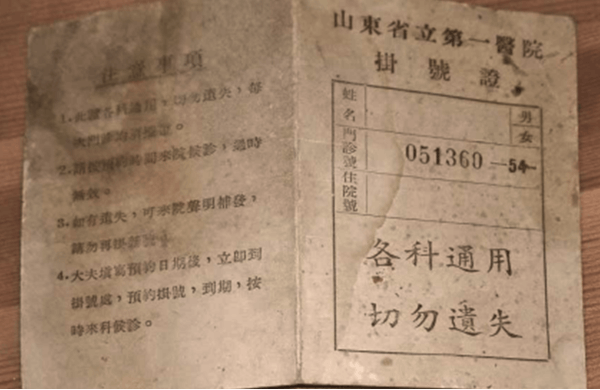 注意事項
1.此證各科通用,切勿遺失,每
次門診
2.時間來院候診,過時
無效。
3.如有遺失,可來院聲明補發,
請勿再掛
4.大夫填寫預約日期後,立即到
掛號處,預約掛號,到期,按
時來科候診。
山東省立第一醫院
掛號證
姓名 男女
門診號 051360 —54—
住院號
各科通用
切勿遺失